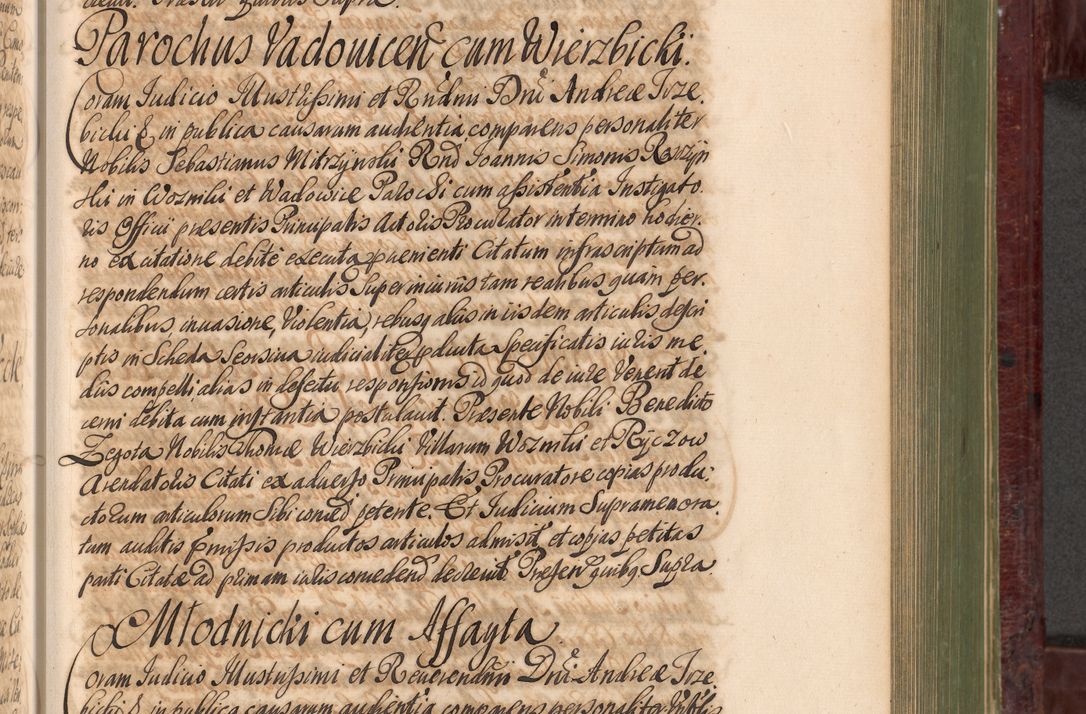 Parochus Vadovicen cum Wierzbicki.
Coram Judicio Illustrissimi et Rndmi Dni Andreæ Trze,
bicki & in publica causarum audientia comparens personaliter
Nobilis Sebastianus Mitrzynski Rnd Joannis Simonis
ski in Wozniki et Wadowice Parochi cum assistentia Instigato
ris Officii præsentis Principalis Actoris Procurator in termino hodier,
no ex citatione debitè executa provenienti Citatum infrascriptum ad
respondendum certis articulis super iniuriis tam realibus quam per,
sonalibus invasione, Violentia, rebusq aliis in iisdem articulis descri
ptis in Scheda Seorsiva iudicialiter producta specificatis iuris me
diis compelli alias in defectu responsionis id quod de iure Venerit de
cerni debita cum instantia postulavit. Præsente Nobili Benedicto
Zegota Nobilis Thomæ Wierzbicki Villarum Wozniki et Ryczow
Arendatoris Citati ex adverso Principalis Procuratore copias produ,
ctorum articulorum Sibi conced petente. Et Judicium Supramemora,
tum auditis præmissis productos articulos admisit et copias petitas
parti Citatæ ad primam iuris concedend decrevit Presen quibq Supra.
Młodnicki cum Affayta.
Coram Judicio Illustrissimi et Reverendmi Dni Andreæ Trze
bicki & in publica causarum audientia comparens personaliter